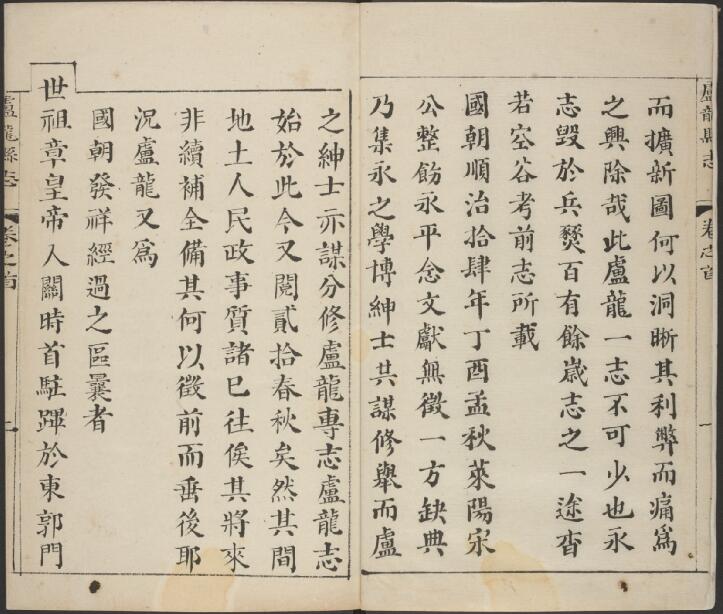 盧龍縣志
卷之首
一
而擴新圖何以洞晰其利弊而痛為
之興除哉此盧龍一志不可少也永
志毀於兵燹百有餘歲志之一途杳
若空谷考前志所載
國朝順治拾肆年丁酉孟秋萊陽宋
公整飭永平念文獻無徵一方缺典
乃集永之學博紳士共謀修舉而盧
之紳士亦謀分修盧龍專志盧龍志
始於此今又閱貳拾春秋矣然其間
地土人民政事質諸已往俟其將來
非續補全備其何以徵前而垂後耶
況盧龍又為
國朝發祥經過之區曩者
世祖章皇帝入關時首駐蹕於東郭門
盧龍縣志
卷之首